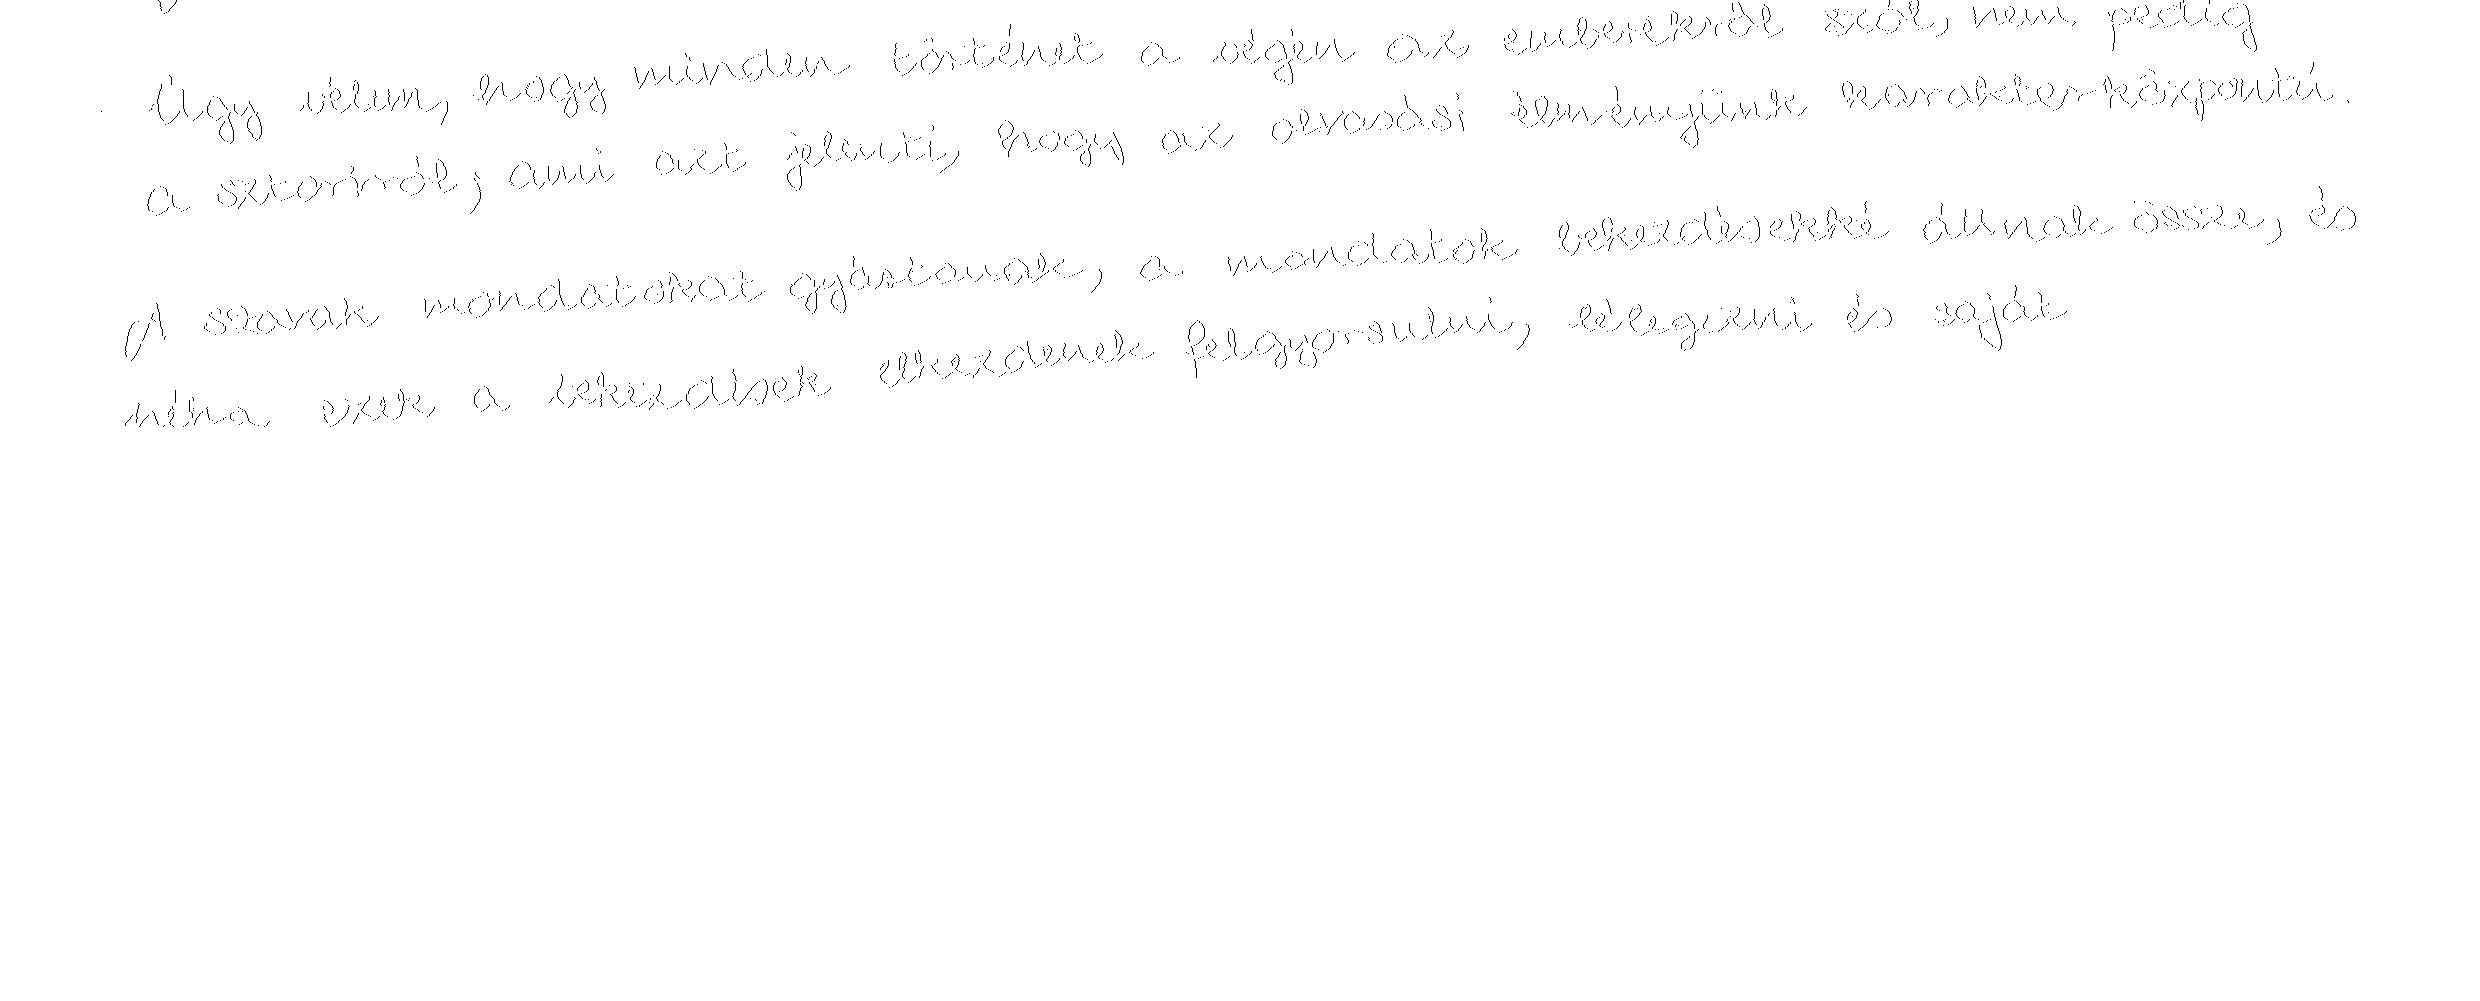 Úgy vélem, hogy minden történet a végén az emberekről szól, nem pedig
a sztoriról, ami azt jelenti, hogy az olvasási élményünk karakterközpontú.
A szavak mondatokat gyártanak, a mondatok bekezdésekké állnak össze, és
néha ezek a bekezdések elkezdenek felgyorsulni, lélegezni és saját